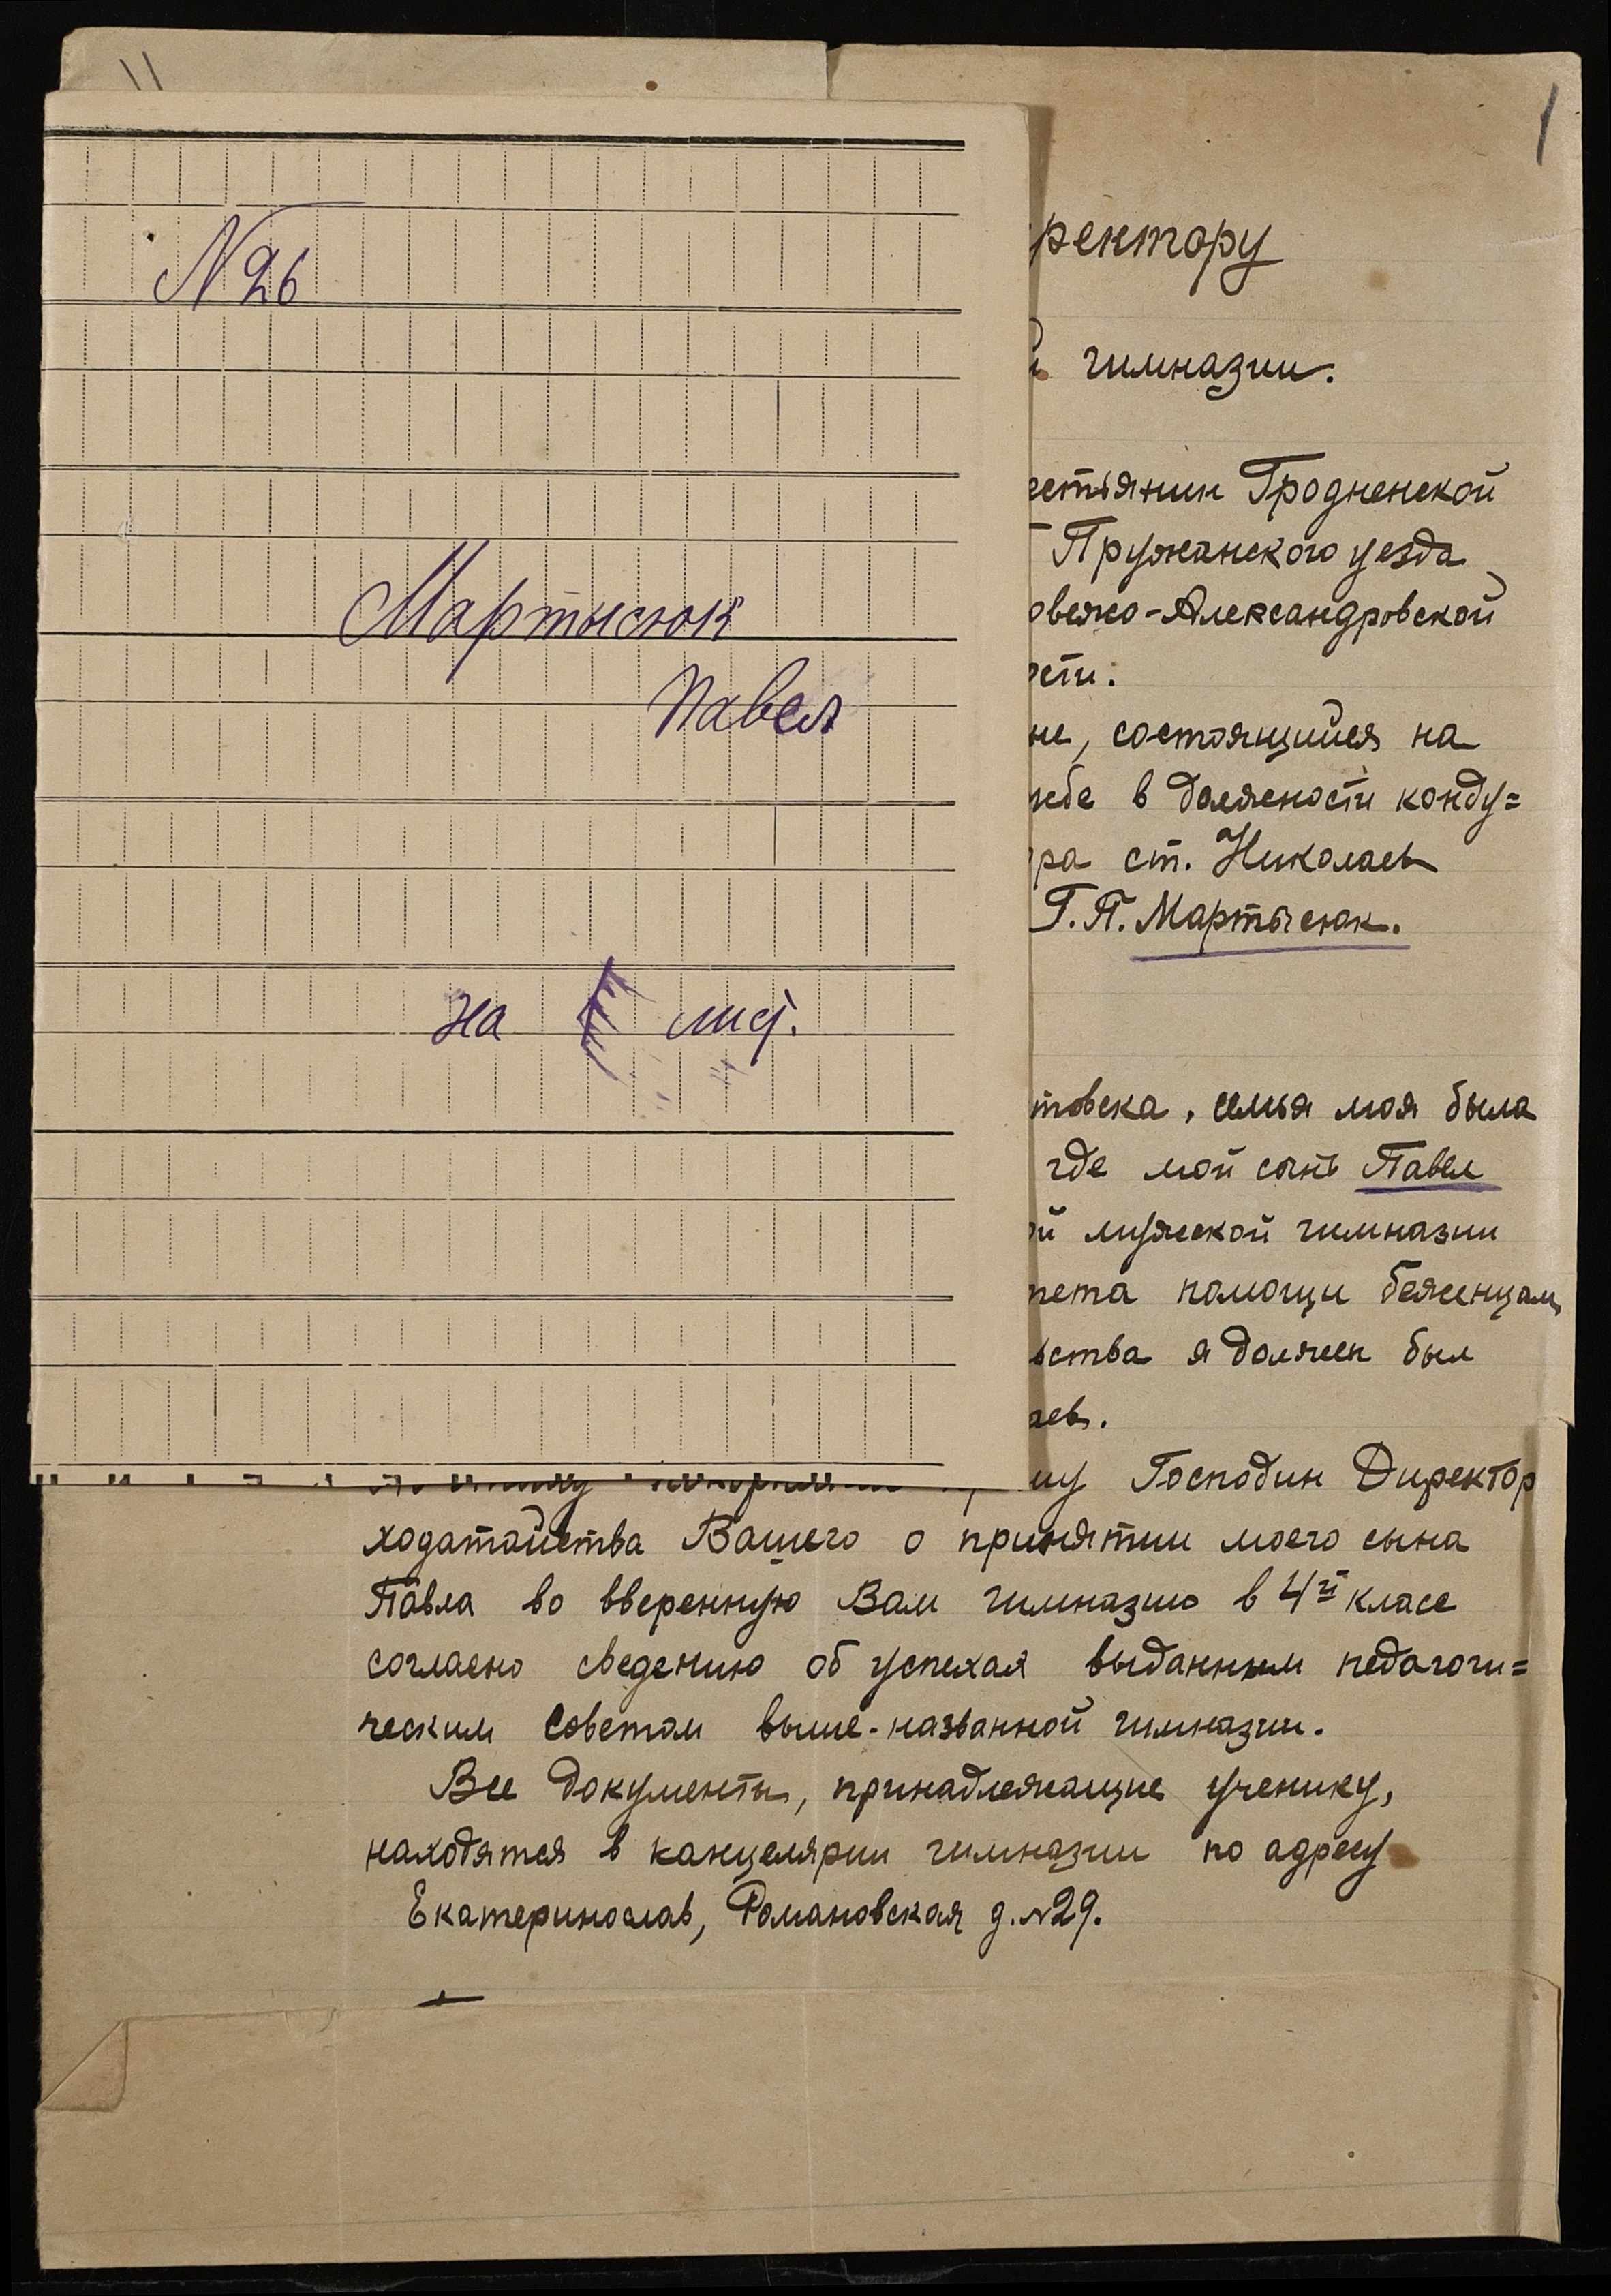 1
N 26
Мартысюк
Павел
на лис.
ректору
й гимназии.
естьянин Гродненской
Пружанского уезда
овежо-Александровской
ости.
не, состоящийся на
жбе в должности конду=
ра ст. Николаев
Г. П. Мартысюк.
товска, семья моя была
где мой сынъ Павел
ой мужской гимназии
тета помощи беженцам,
ьства я должен был
аев.
шу Господин Директор
ходатайства Вашего о принятии моего сына
Павла во вверенную Вам гимназию в 4й класс
согласно сведению об успехах выданным педагоги=
ческим Советом выше-названной гимназии.
Все документы, принадлежащие ученику,
находятся в канцелярии гимназии по адресу
Екатеринослав, Романовская д. N 29.